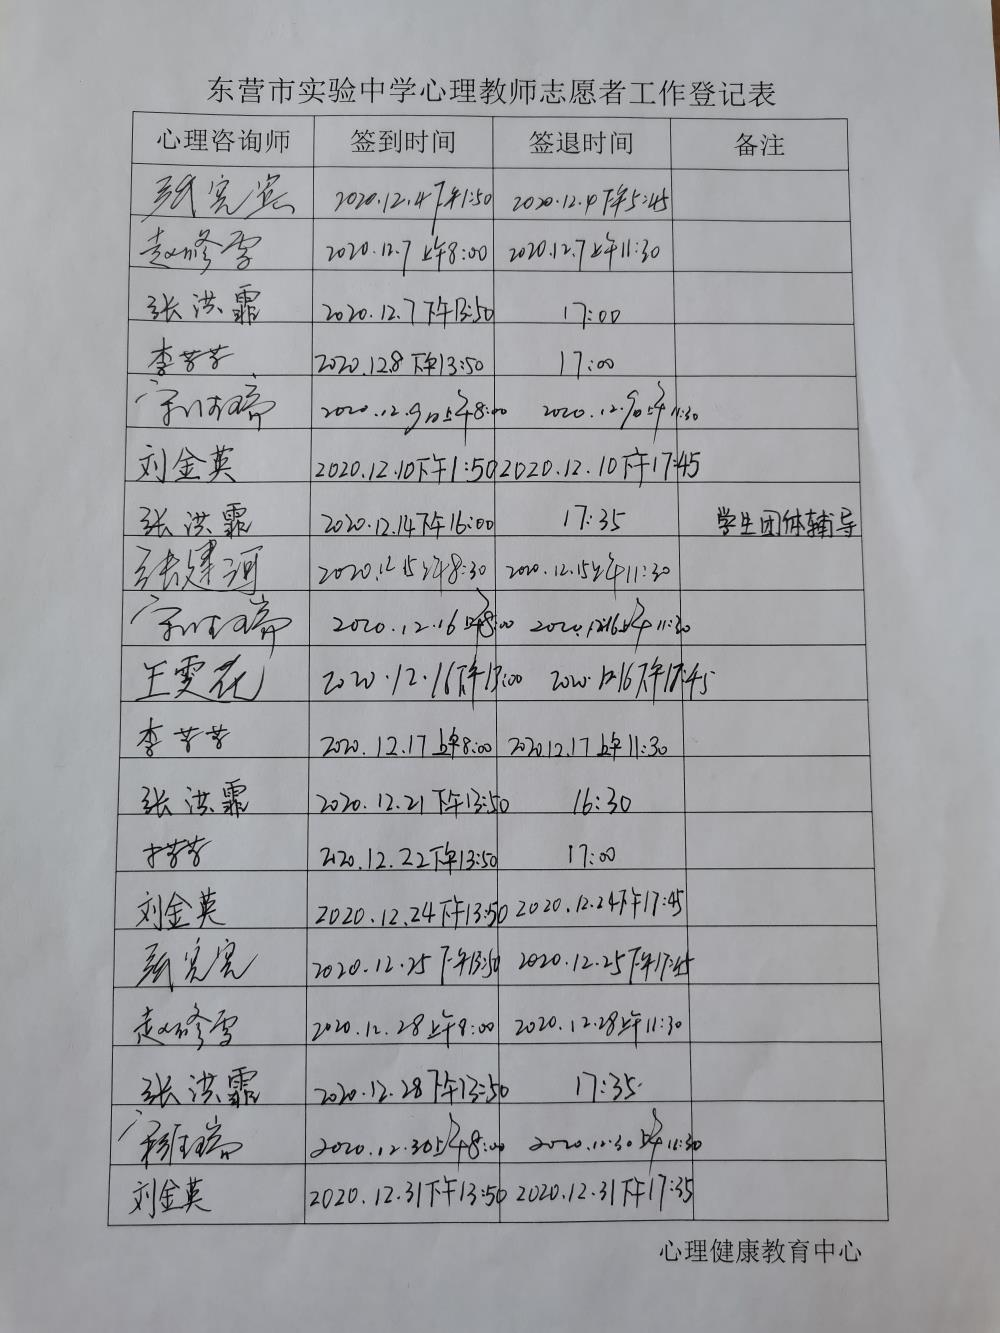 东营市实验中学心理教师志愿者工作登记表
心理咨询师 签到时间 签退时间 备注
2020.12.4下午1:50 2020.12.4下午5:45
赵修雪 2020.12.7上午8:00 2020.12.7上午11:30
张洪霏 2020.12.7下午13:50 17:00
李芳芳 2020.12.8下午13:50 17:00
2020.12.9日上午8:00 2020.12.9日上午11:30
刘金英 2020.12.10下午1:50 2020.12.10下午17:45
张洪霏 2020.12.14下午16:00 17:35 学生团体辅导
张建河 2020.12.15上午8:30 2020.12.15上午11:30
2020.12.16上午8:00 2020.12.16上午11:30
王雯花 2020.12.16下午13:00 2020.12.16下午17:45
李芳芳 2020.12.17上午8:00 2020.12.17上午11:30
张洪霏 2020.12.21下午13:50 16:30
李芳芳 2020.12.22下午13:50 17:00
刘金英 2020.12.24下午13:50 2020.12.24下午17:45
2020.12.25下午13:50 2020.12.25下午17:45
赵修雪 2020.12.28上午8:00 2020.12.28上午11:30
张洪霏 2020.12.28下午13:50 17:35
2020.12.30上午8:00 2020.12.30上午11:30
刘金英 2020.12.31下午13:50 2020.12.31下午17:35
心理健康教育中心